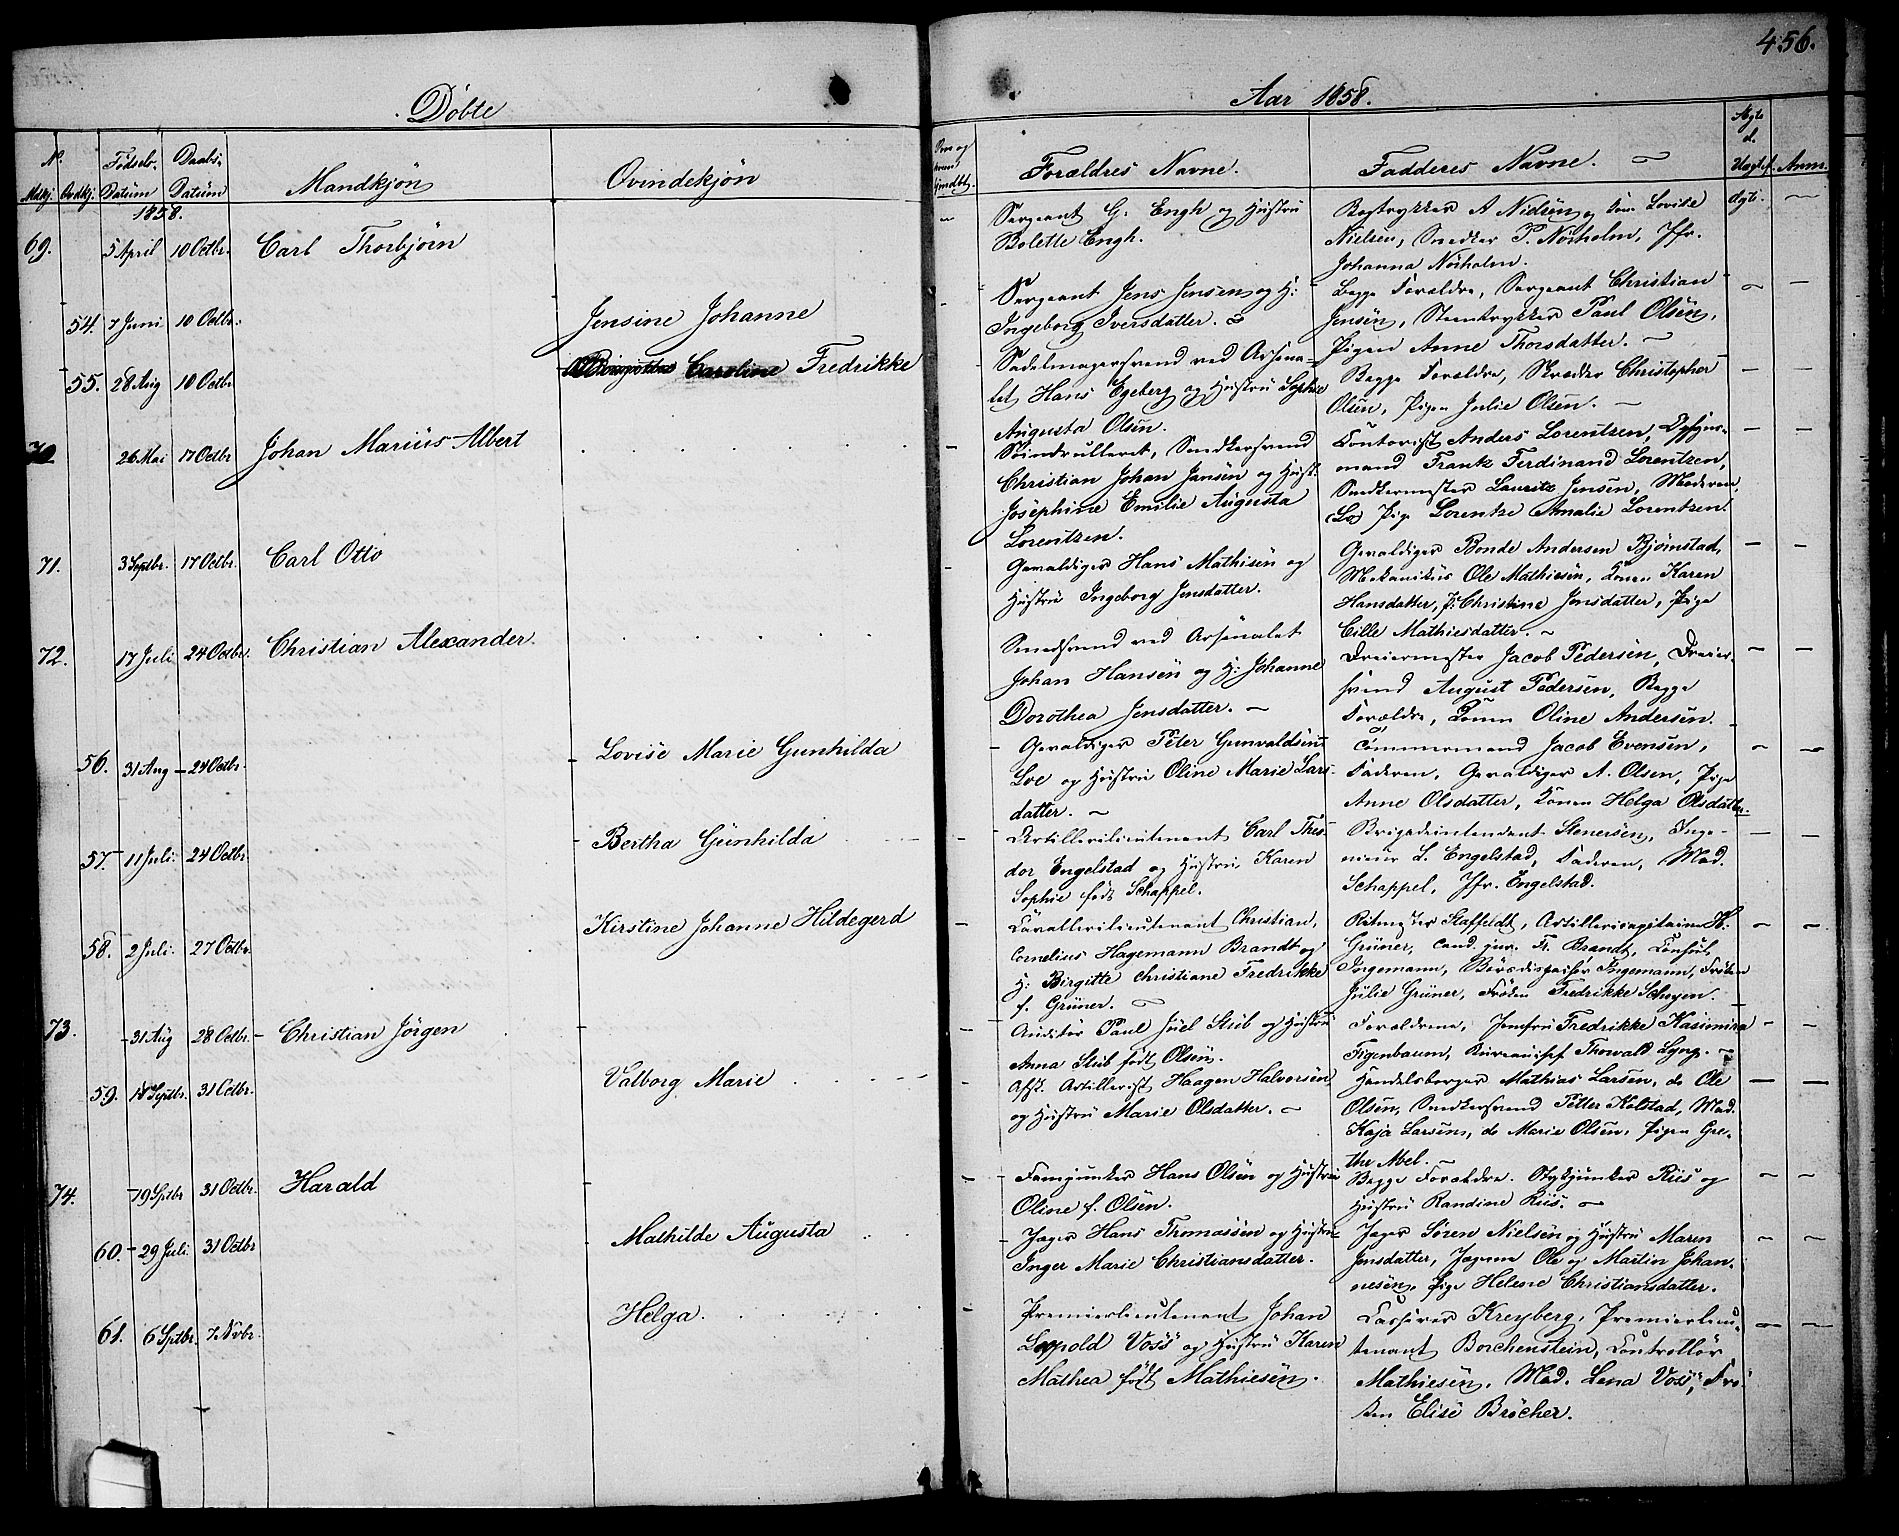 456.
Døbte
Aar 1858.
No.
Mdkj. Qvdkj.
Fødsels-
Datum
Daabs-
Datum
Mandkjøn
Qvindekjøn
Forældres Navne.
Fadderes Navne.
Anm.
1858.
69. 5 April 10 Octbr. Carl Thorbjørn
Sergeant G. Engh og Hustru
Bolette Engh.
Bogtrykker A Nielsen og Kone Lovise
Nielsen, Snedker P. Nørholm, Jfr.
Johanna Nørholm.
ægte.
54. 7 Juni 10 Octbr. Jensine Johanne
Sergeant Jens Jensen og H:
Ingeborg Iversdatter.
Begge Forældre, Sergeant Christian
Jensen, Steentrykker Paul Olsen,
Pigen Anne Thorsdatter.
55. 28 Aug 10 Octbr Caroline Fredrikke
Sadelmagersvend ved Arsena-
let Hans Egeberg og Hustru Sophie
Augusta Olsen.
Begge Forældre, Skrædder Christopher
Olsen, Pigen Julie Olsen.
70 26 Mai 17 Octbr Johan Marius Albert
Søindrulleret, Snedkersvend
Christian Johan Jansen og Hust.
Josephine Emilie Augusta
Lorentzen.
Contorist Anders Lorentzen,
mand Frantz Ferdinand Lorentzen,
Snedkermester Lauritz Jensen, Moderen,
Pige Lorentze Amalie Lorentzen.
71. 3 Septbr. 17 Octbr. Carl Otto
Gevaldiger Hans Mathisen og
Hustru Ingeborg Jensdatter.
Gevaldiger Bonde Andersen Bjørnstad,
Mekanikus Ole Mathiesen, Konen Karen
Hansdatter, P. Christine Jensdatter, Pige
Cille Mathiesdatter.
72. 17 Juli 24 Octbr. Christian Alexander
Smedsvend ved Arsenalet
Johan Hansen og H: Johanne
Dorothea Jensdatter.
Dreiermester Jacob Pedersen, Dreier-
svend August Pedersen, Begge
Forældre, Konen Oline Andersen.
56. 31 Aug 24 Octbr. Lovise Marie Gunhilda
Gevaldiger Peter Gunvaldsen
Loe og Hustru Oline Marie Lars-
datter.
Tømmermand Jacob Evensen,
Faderen, Gevaldiger A. Olsen, Pige
Anne Olsdatter, Konen Helga Olsdatter.
57. 11 Juli. 24 Octbr. Bertha Gunhilda
Artillerilieutenant Carl Theo-
dor Engelstad og Hustru, Karen
Sophie født Schappel.
Brigadeintendant Stenersen, Inge-
nieur S. Engelstad, Faderen, Mad.
Schappel, Jfr. Engelstad.
58. 2 Juli. 27 Octbr. Kirstine Johanne Hildegerd
Cavallerilieutenant Christian,
Cornelius Hagemann Brandt og
H: Birgitte Christiane Fredrikke
f. Grüner.
Ritmester Staffeldt, Artillericapitaine H.
Grüner, cand. jur. Fr. Brandt, Consul,
Ingemann, Ingemann, Frøken
Julie Grüner, Frøken Fredrikke Schuyen.
73. 31 Aug 28 Octbr. Christian Jørgen
Auditør Paul Juel Stub og Hustru
Anna Stub født Olsen.
Forældrene, Jomfru Fredrikke Kasimira
Figenbaum, Bureauchef Thorvald Lyng.
59. 18 Septbr. 31 Octbr. Valborg Marie
Afsk. Artillerist Haagen Halvorsen
og Hustru Marie Olsdatter.
Handelsborger Mathias Larsen, do Ole
Olsen, Snedkersvend Petter Kolstad, Mad.
Kaja Larsen, do Marie Olsen, Pigen Gre-
the Abel.
74. 19 Sptbr 31 Octbr. Harald
Fanejunker Hans Olsen og Hustru
Oline f. Olsen.
Begge Forældre. Stykjunker Riis og
Hustru Randine Riis.
60. 29 Juli. 31 Octbr Mathilde Augusta
Jæger Hans Thomassen og Hustru
Inger Marie Christiansdatter.
Jæger Søren Nielsen og Hustru Maren
Jensdatter, Jægerne Ole og Martin Johan-
nesen, Pige Helene Christiansdatter.
61. 6 Sptbr. 7 Nvbr. Helga.
Premierlieutenant Johan
Leopold Voss og Hustru Karen
Mathea født Mathiesen.
Casserer Kreyberg, Premierlieu-
tenant Borchenstein, Controllør
Mathiesen, Mad. Lena Voss, Frø-
ken Elise Brocher.